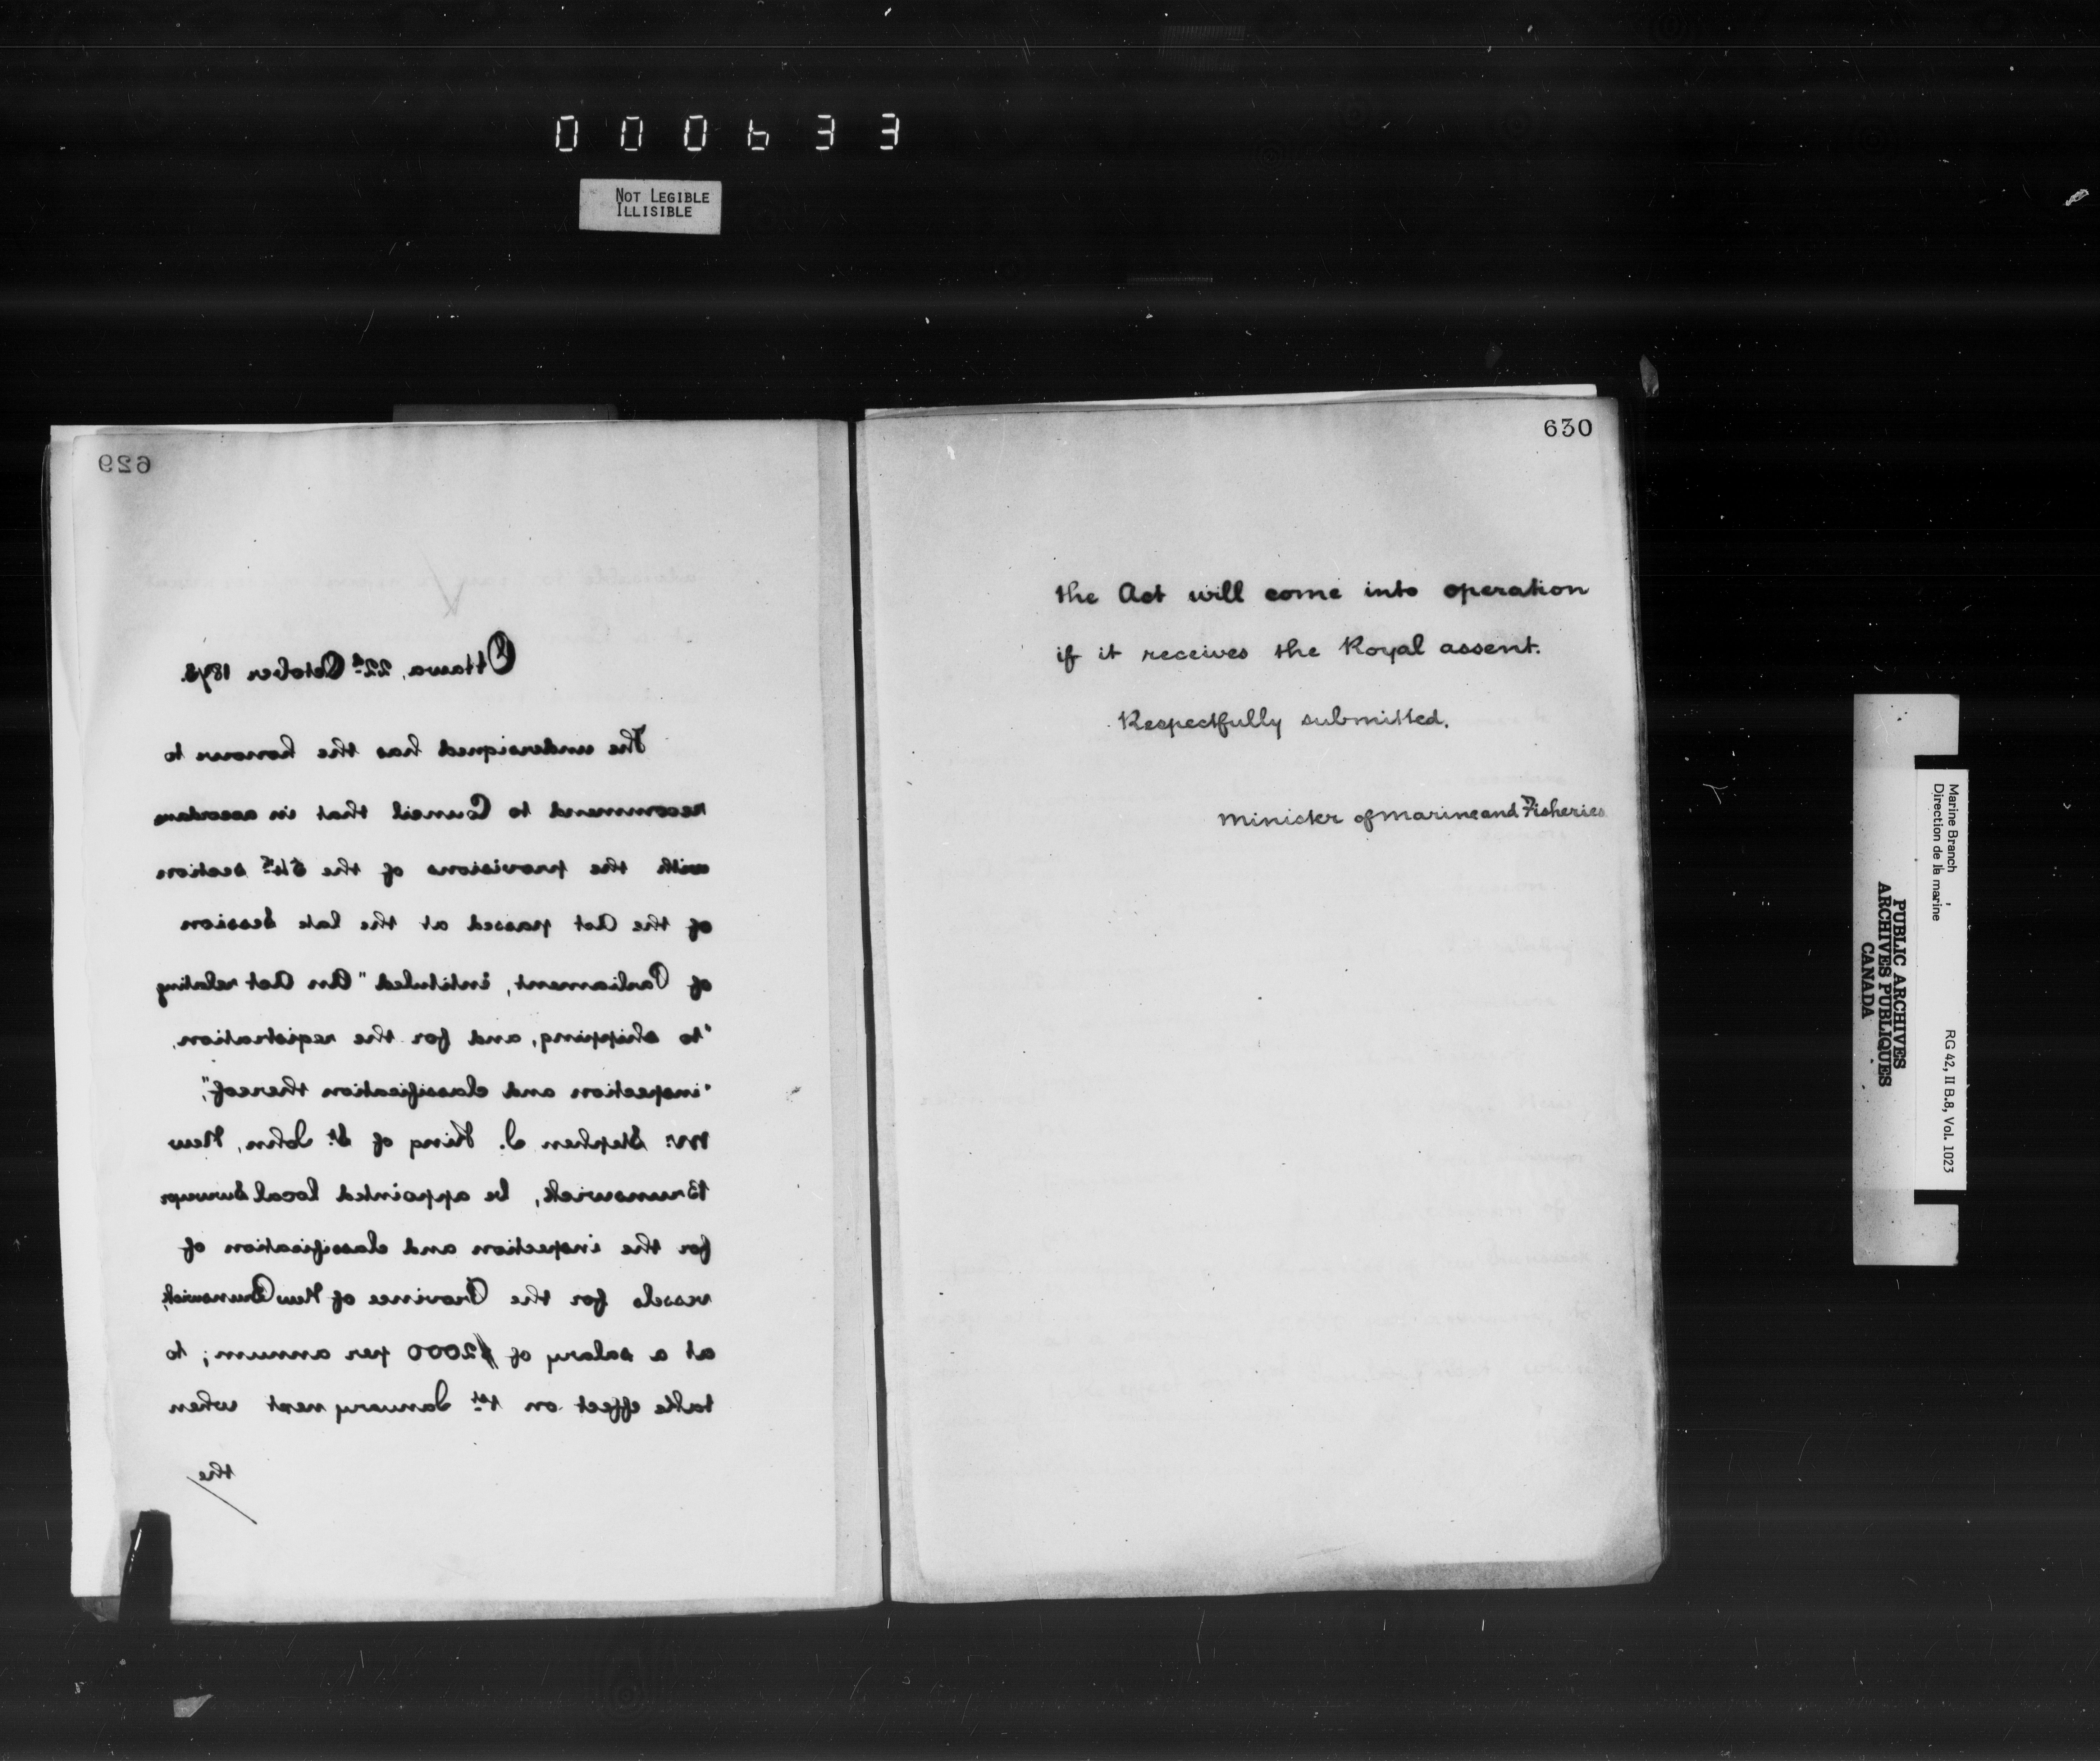 000633
NOT LEGIBLE
ILLISIBLE
629
Ottawa, 22d October 1873.
The undersigned has the honour to
recommend to Council that in accordance
with the provisions of the 54th section
of the Act passed at the late Session
of Parliament, intituled "An Act relating
"to shipping, and for the registration,
"inspection and classification thereof",
Mr. Stephen J. King of St. John, New
Brunswick, be appointed local Surveyor
for the inspection and classification of
vessels for the Province of New Brunswick,
at a salary of $2000 per annum; to
take effect on 1st January next when
the
630
the Act will come into operation
if it receives the Royal assent.
Respectfully submitted.
Minister of Marine and Fisheries
Marine Branch
Direction de la marine
RG 42, II B.8, Vol. 1023
PUBLIC ARCHIVES
ARCHIVES PUBLIQUES
CANADA